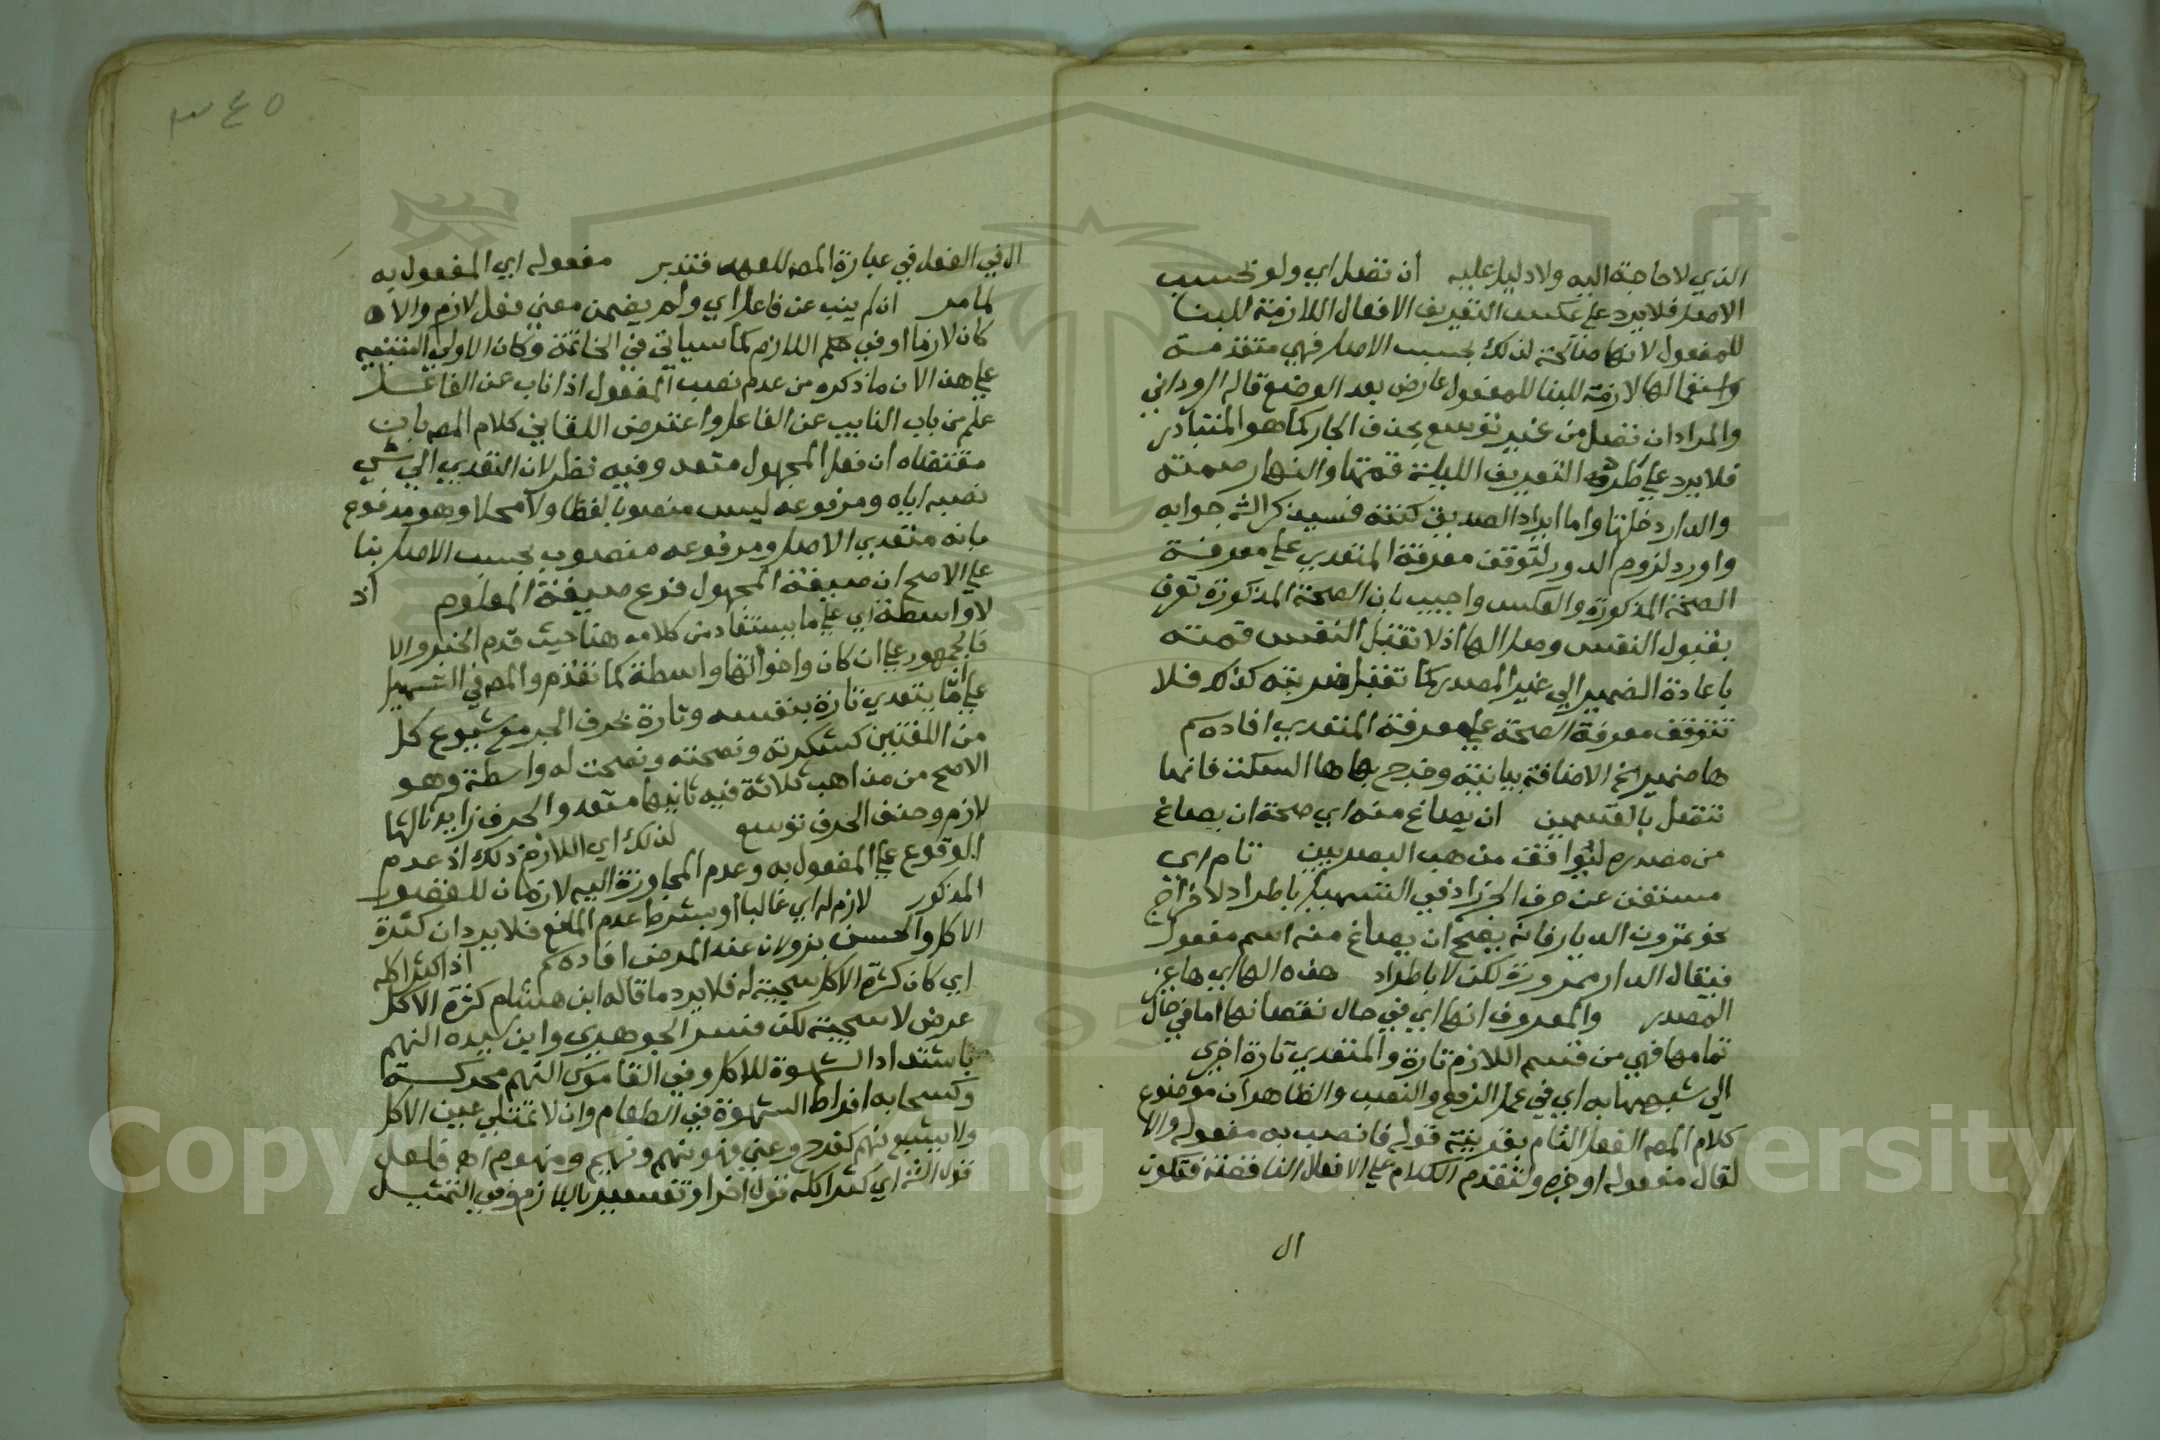 الذي لا حاجة اليه ولا دليل عليه ان تصل اي ولو بحسب
الاصل فلا يرد على عكس التعريف الافعال اللازمة للبنا
للمفعول لانها صالحة لذلك بحسب الاصل فهي متقدمة
واستعمالها لازمة للبنا للمفعول عارض بعد الوضع قاله الروداني
والمراد ان تصل من غير توسع بحذف الجار كما هو المتبادر
فلا يرد على طرد التعريف الليلة قمتها والنهار صمته
والدار دخلتها واما ايراد الصديق كنته فسيذكر الشه جوابه
واورد لزوم الدور لتوقف معرفة المتعدي على معرفة
الصحة المذكورة والعكس واجيب بان الصحة المذكورة تعرف
بقبول النفس وصل الها اذ لا تقبل النفس قمته
باعادة الضمير الي غير المصدر كما تقبل ضربته كذلك فلا
تتوقف معرفة الصحة على معرفة المتعدي افاده سم
ها ضمير الخ الاضافة بيانية وخرج بها ها السكت فانها
تتصل بالقسمين ان يصاغ منه اي صحة ان يصاغ
من مصدره ليوافق مذهب البصريين تام اي
مستغن عن حرف الجر زاد في التسهيل باطراد لاخراج
نحو تمرون الديار فانه يصح ان يصاغ منه اسم مفعول
فيقال الدار ممرورة لكن لا باطراد هذه الها اي ها غير
المصدر والمعروف انها اي في حال نقصانها اما في حال
تمامها فهي من قسم اللازم تارة والمتعدي تارة اخرى
الي شبهها به اي في عمل الرفع والنصب والظاهر ان موضوع
كلام المصـ الفعل التام بقرينة قوله فانصب به مفعوله والا
لقال مفعوله او خبره ولتقدم الكلام على الافعال الناقصة فتكون
ال
٣٤٥
ال في الفعل في عبارة المصـ للعهد فتدبر مفعوله اي المفعول به
لما مر ان لم ينب عن فاعل اي ولم يضمن معنى فعل لازم والا
كان لازما او في حكم اللازم كما سياتي في الخاتمة وكان الاولى التنبيه
على هذا لان ما ذكره من عدم نصب المفعول اذا ناب عن الفاعل
علم من باب النايب عن الفاعل واعترض اللقاني كلام المصـ بان
مقتضاه ان فعل المجهول متعد وفيه نظر لان التعدي الي شي
نصبه اياه ومرفوعه ليس منصوبا لفظا ولا محلا وهو مدفوع
بانه متعدي الاصل ومرفوعه منصوب بحسب الاصل بنا
على الاصح ان صيغة المجهول فرع صيغة المعلوم اذ
لا واسطة اي على ما يستفاد من كلامه هنا حيث قدم الخبر والا
فالجمهور على ان كان واخواتها واسطة كما تقدم والمصـ في التسهيل
على ان ما يتعدي تارة بنفسه وتارة بحرف الجر مع شيوع كل
من اللغتين كشكرته ونصحته ونصحت له واسطة وهو
الاصح من مذاهب ثلاثة فيه ثانيها متعد والحرف زايد ثالثها
لازم وحذف الحرف توسع لذلك اي اللازم ذلك اذ عدم
الوقوع على المفعول به وعدم المجاوزة اليه لازمان للقصور
المذكور لازم له اي غالبا او بشرط عدم المانع فلا يرد ان كثرة
الاكل والحسن يزولان عند المرض افاده سم اذا كثر اكله
اي كان كثرة الاكل سجية له فلا يرد ما قاله ابن هشام كثرة الاكل
عرض لا سجية لكن فسر الجوهري وابن سيده النهم
باشتداد الشهوة للاكل وفي القاموس النهم محركة
وكسحابه افراط الشهوة في الطعام وان لا تمتلي عين الاكل
ولا يشبع نهم كفرح وعني فهو نهم ونهيم ومنهوم اهـ فلعل
قول الشه اي كثر اكله قول اخر او تفسير باللازم وفي التمثيل